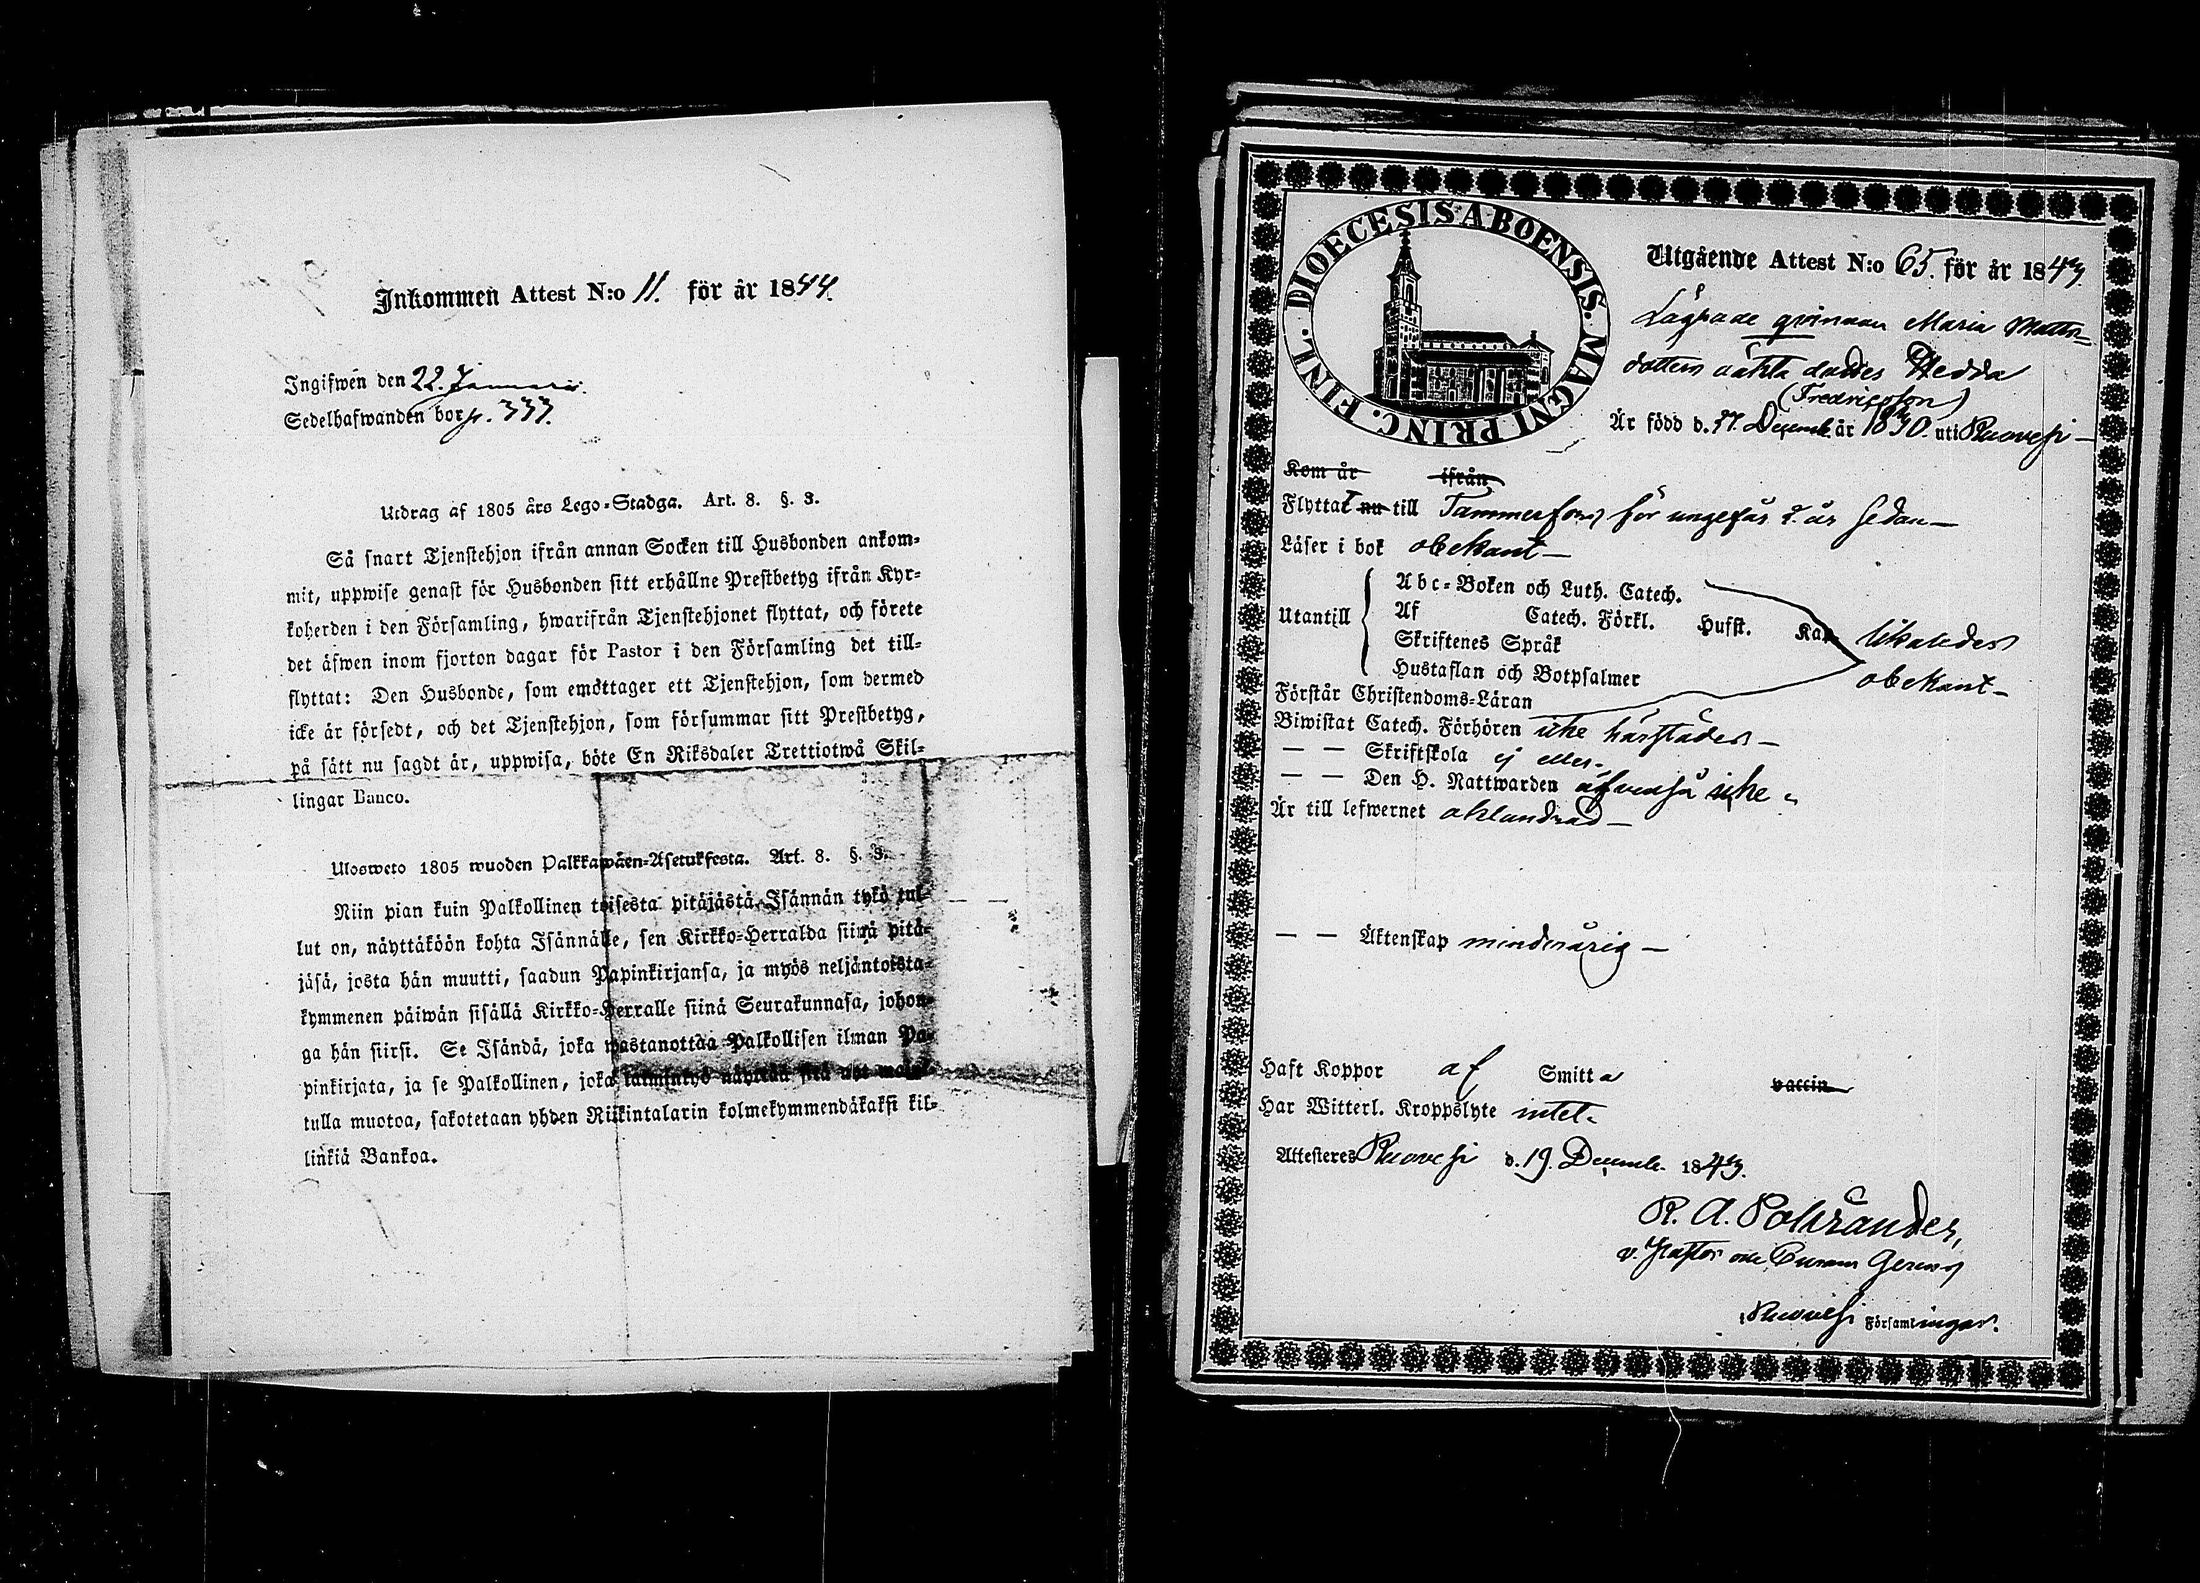 Inkommen Attest N:o 11. för år 1844.
Ingifwen den 22. Januari.
Sedelhafwanden bor p. 333.
Utdrag af 1805 års Lego-Stadga. Art. 8. §. 3.
Så snart Tjenstehjon ifrån annan Socken till Husbonden ankom-
mit, uppwise genast för Husbonden sitt erhållne Prestbetyg ifrån Kyr-
koherden i den Församling, hwarifrån Tjenstehjonet flyttat, och förete
det äfwen inom fjorton dagar för Pastor i den Församling det till-
flyttat: Den Husbonde, som emottager ett Tjenstehjon, som dermed
icke är försedt, och det Tjenstehjon, som försummar sitt Prestbetyg,
på sätt nu sagdt är, uppwisa, böte En Riksdaler Trettiotwå Skil-
lingar Banco.
Ulosweto 1805 wuoden Palkkawäen-Asetuksesta. Art. 8. §. 3.
Niin pian kuin Palkollinen toisesta pitäjästä Isännän tykö tul-
lut on, näyttäköön kohta Isännälle, sen Kirkko-Herralda siinä pitä-
jäsä, josta hän muutti, saadun Papinkirjansa, ja myös neljäntoista-
kymmenen päiwän sisällä Kirkko-Herralle siinä Seurakunnasa, johon-
ga hän siirsi. Se Isändä, joka wastanottaa Palkollisen ilman Pa-
pinkirjata, ja se Palkollinen, joka laiminlyö näyttää sitä nyt mainit-
tulla muotoa, sakotetaan yhden Riikintalarin kolmekymmendäkaksi kil-
linkiä Bankoa.
DIOECESIS ABOENSIS. MAGNI PRINC. FINL.
Utgående Attest N:o 65. för år 1843.
Lägrade qvinnan Maria Matts-
dotters oäkta dotter Hedda
(Fredricsson)
Är född d. 17. Decemb. år 1830. uti Ruovesi
Kom år ifrån
Flyttat nu till Tammerfors för ungefär 2. år sedan
Läser i bok obekant
Abc-Boken och Luth. Catech.
Utantill Af Catech. Förkl. Husft. Kan likaledes
Skriftenes Språk
Hustaflan och Botpsalmer obekant
Förstår Christendoms-Läran
Biwistat Catech. Förhören icke härstädes
— — Skriftskola ej eller
— — Den H. Nattwarden äfvenså icke
Är till lefwernet oklandrad
— — Äktenskap minderårig
Haft Koppor af Smitta vaccin
Har Witterl. Kroppslyte intet.
Attesteres Ruovesi d. 19. Decemb. 1843.
R. A. Polviander,
v. Pastor
Ruovesi Församlingar.